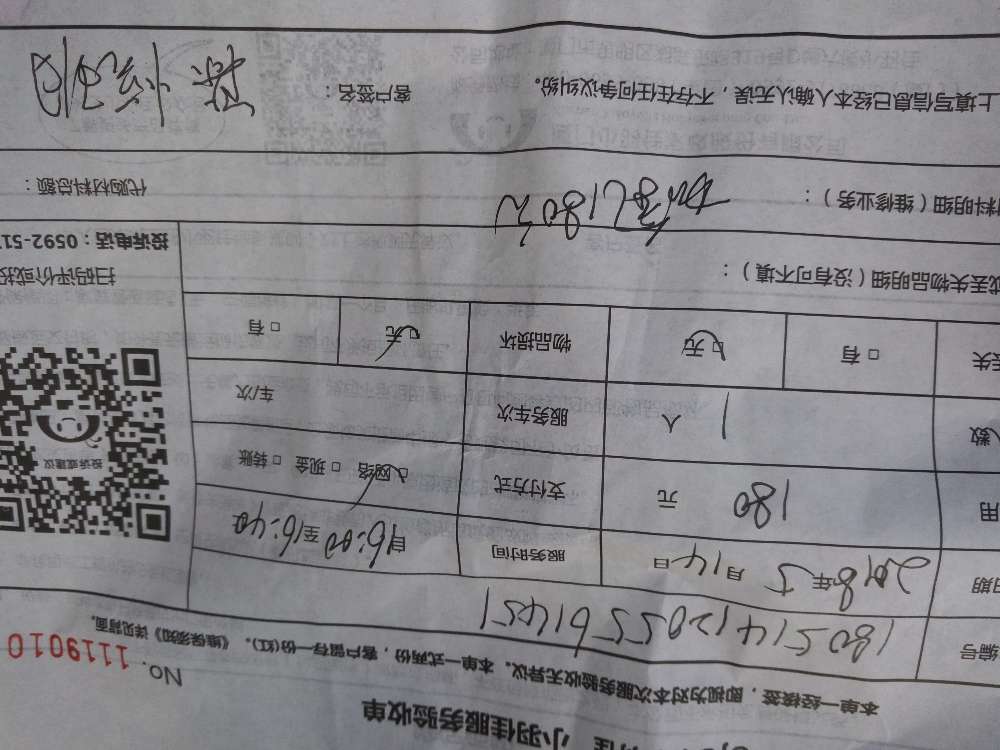 小羽佳服务验收单
本单一经接签，即视为对本次服务验收无异议。本单一式两份，客户留存一份(红)。《维保须知》详见背面。
No. 1119010
编号 18051412055561451
日期 2018年5月14日 服务时间 自16:00至16:40
用 180 元 支付方式 □网络 □现金 □转账
人数 1 人 服务车次 车/次
丢失 □有 □无 物品损坏 □无 □有
投诉或建议
扫码评价或投
投诉电话：0592-51
或丢失物品明细（没有可不填）：
材料明细（维修业务）： 180元
代购材料总额：
上填写信息已经本人确认无误，不存在任何争议纠纷。 客户签名：